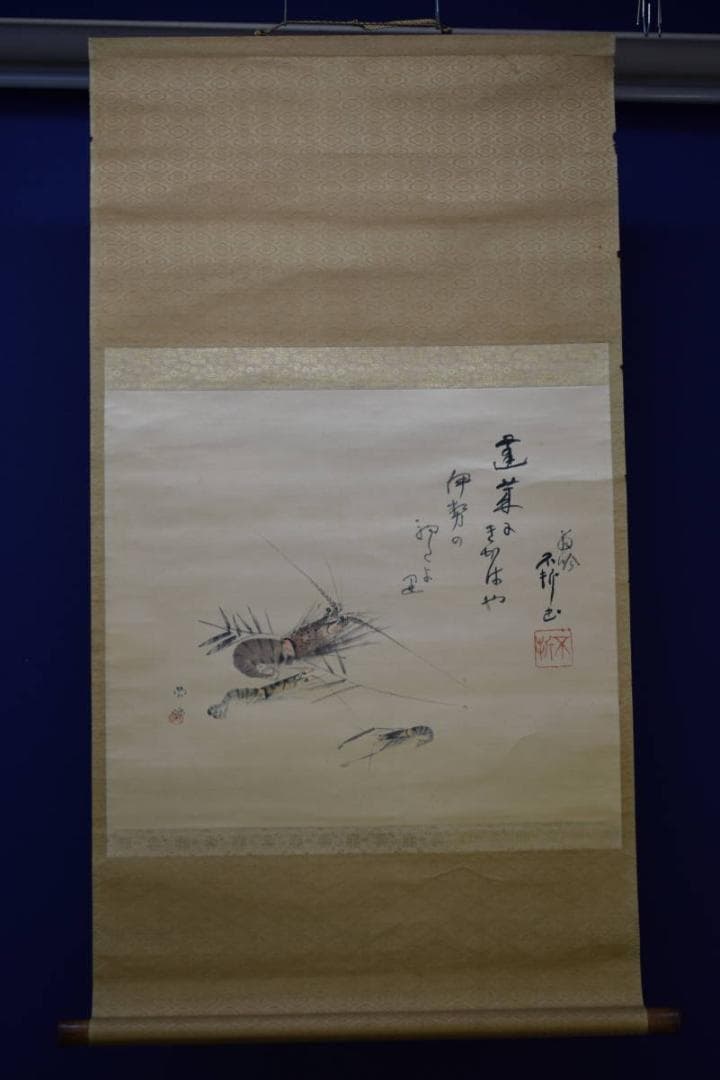 翁吟
不折書
不折
蓬莱にきかはや
伊勢の
初たより